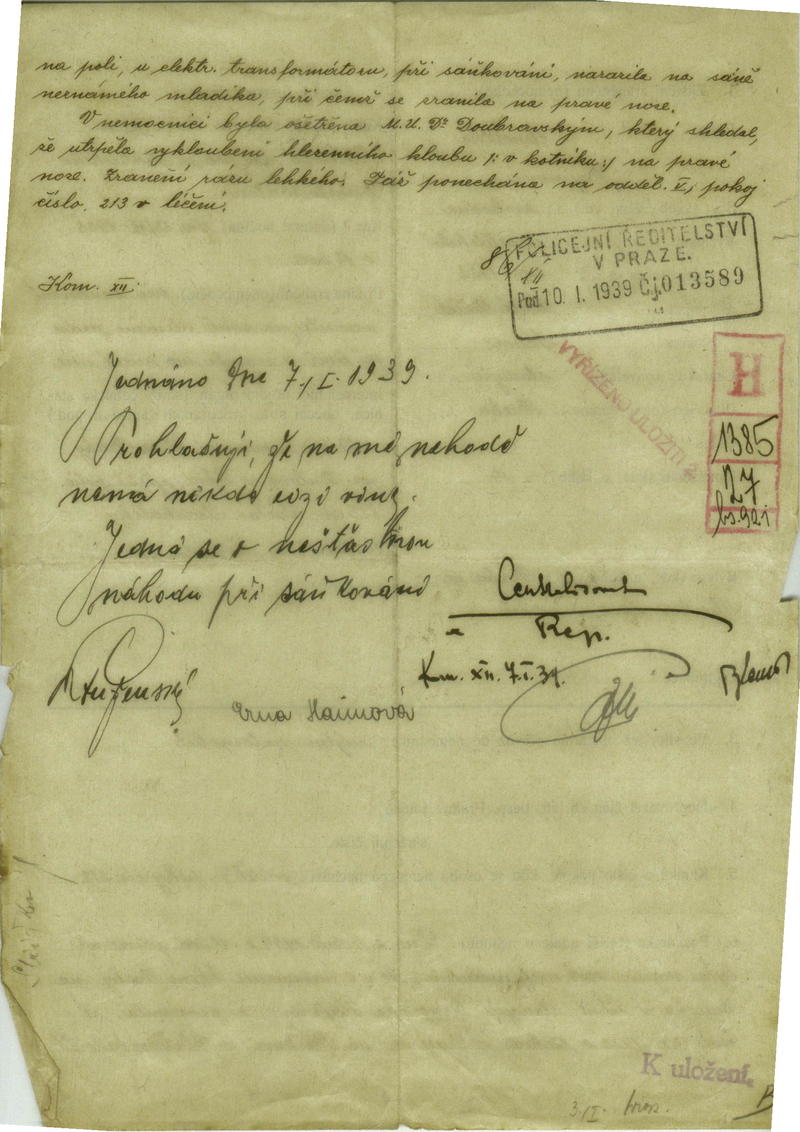 na poli, u elektr. transformátoru, při sáňkování, narazila na sáně
neznámého mladíka, při čemž se zranila na pravé noze.
V nemocnici byla ošetřena M.U. Dr Doubravským, který shledal,
že utrpěla vykloubení hlezenního kloubu /: v kotníku :/ na pravé
noze. Zranění rázu lehkého. Táž ponechána na odděl. V, pokoj
číslo 213 v léčení.
POLICEJNÍ ŘEDITELSTVÍ
V PRAZE.
Pod. 10. I. 1939 Čj. 013589
Kom. XII.
VYŘÍZENO ULOŽITI
H
1385
27
Jednáno dne 7./I. 1939.
Prohlašuji, že na mé nehodě
nemá nikdo cizí viny.
Jedná se o nešťastnou
náhodu při sáňkování
Rep.
Km. XII. 7.I.39.
Erna Haimová
K uložení.
3./I.